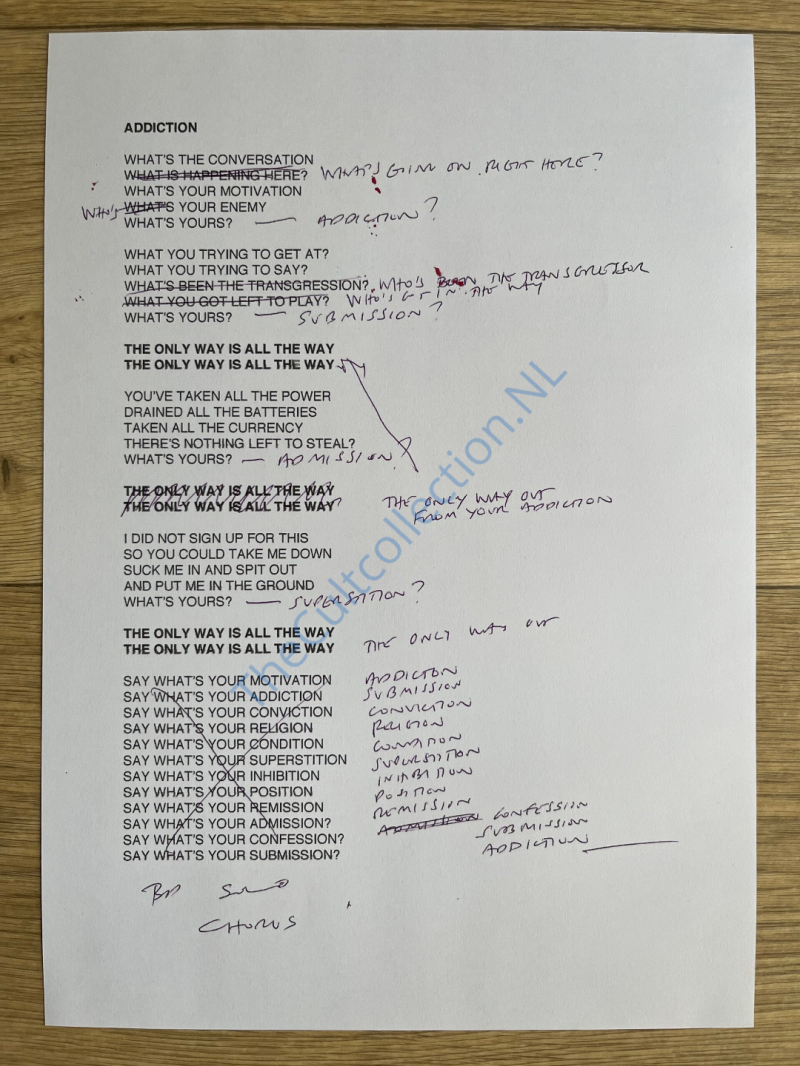 ADDICTION
WHAT'S THE CONVERSATION
WHAT IS HAPPENING HERE? WHAT'S GOING ON RIGHT HERE?
WHAT'S YOUR MOTIVATION
WHO'S WHAT'S YOUR ENEMY
WHAT'S YOURS? — ADDICTION?
WHAT YOU TRYING TO GET AT?
WHAT YOU TRYING TO SAY?
WHAT'S BEEN THE TRANSGRESSION? WHO'S BEEN THE TRANSGRESSOR
WHAT YOU GOT LEFT TO PLAY? WHO'S GOT IN THE WAY
WHAT'S YOURS? — SUBMISSION?
THE ONLY WAY IS ALL THE WAY
THE ONLY WAY IS ALL THE WAY
YOU'VE TAKEN ALL THE POWER
DRAINED ALL THE BATTERIES
TAKEN ALL THE CURRENCY
THERE'S NOTHING LEFT TO STEAL?
WHAT'S YOURS? — ADMISSION?
THE ONLY WAY IS ALL THE WAY
THE ONLY WAY IS ALL THE WAY
THE ONLY WAY OUT
FROM YOUR ADDICTION
I DID NOT SIGN UP FOR THIS
SO YOU COULD TAKE ME DOWN
SUCK ME IN AND SPIT OUT
AND PUT ME IN THE GROUND
WHAT'S YOURS? — SUPERSTITION?
THE ONLY WAY IS ALL THE WAY
THE ONLY WAY IS ALL THE WAY THE ONLY WAY OUT
SAY WHAT'S YOUR MOTIVATION ADDICTON
SAY WHAT'S YOUR ADDICTION SUBMISSION
SAY WHAT'S YOUR CONVICTION CONVICTION
SAY WHAT'S YOUR RELIGION RELIGION
SAY WHAT'S YOUR CONDITION CONDITION
SAY WHAT'S YOUR SUPERSTITION SUPERSTITION
SAY WHAT'S YOUR INHIBITION INHIBITION
SAY WHAT'S YOUR POSITION POSITION
SAY WHAT'S YOUR REMISSION REMISSION
SAY WHAT'S YOUR ADMISSION? ADMISSION CONFESSION
SAY WHAT'S YOUR CONFESSION? SUBMISSION
SAY WHAT'S YOUR SUBMISSION? ADDICTION
CHORUS
TheCultcollection.NL